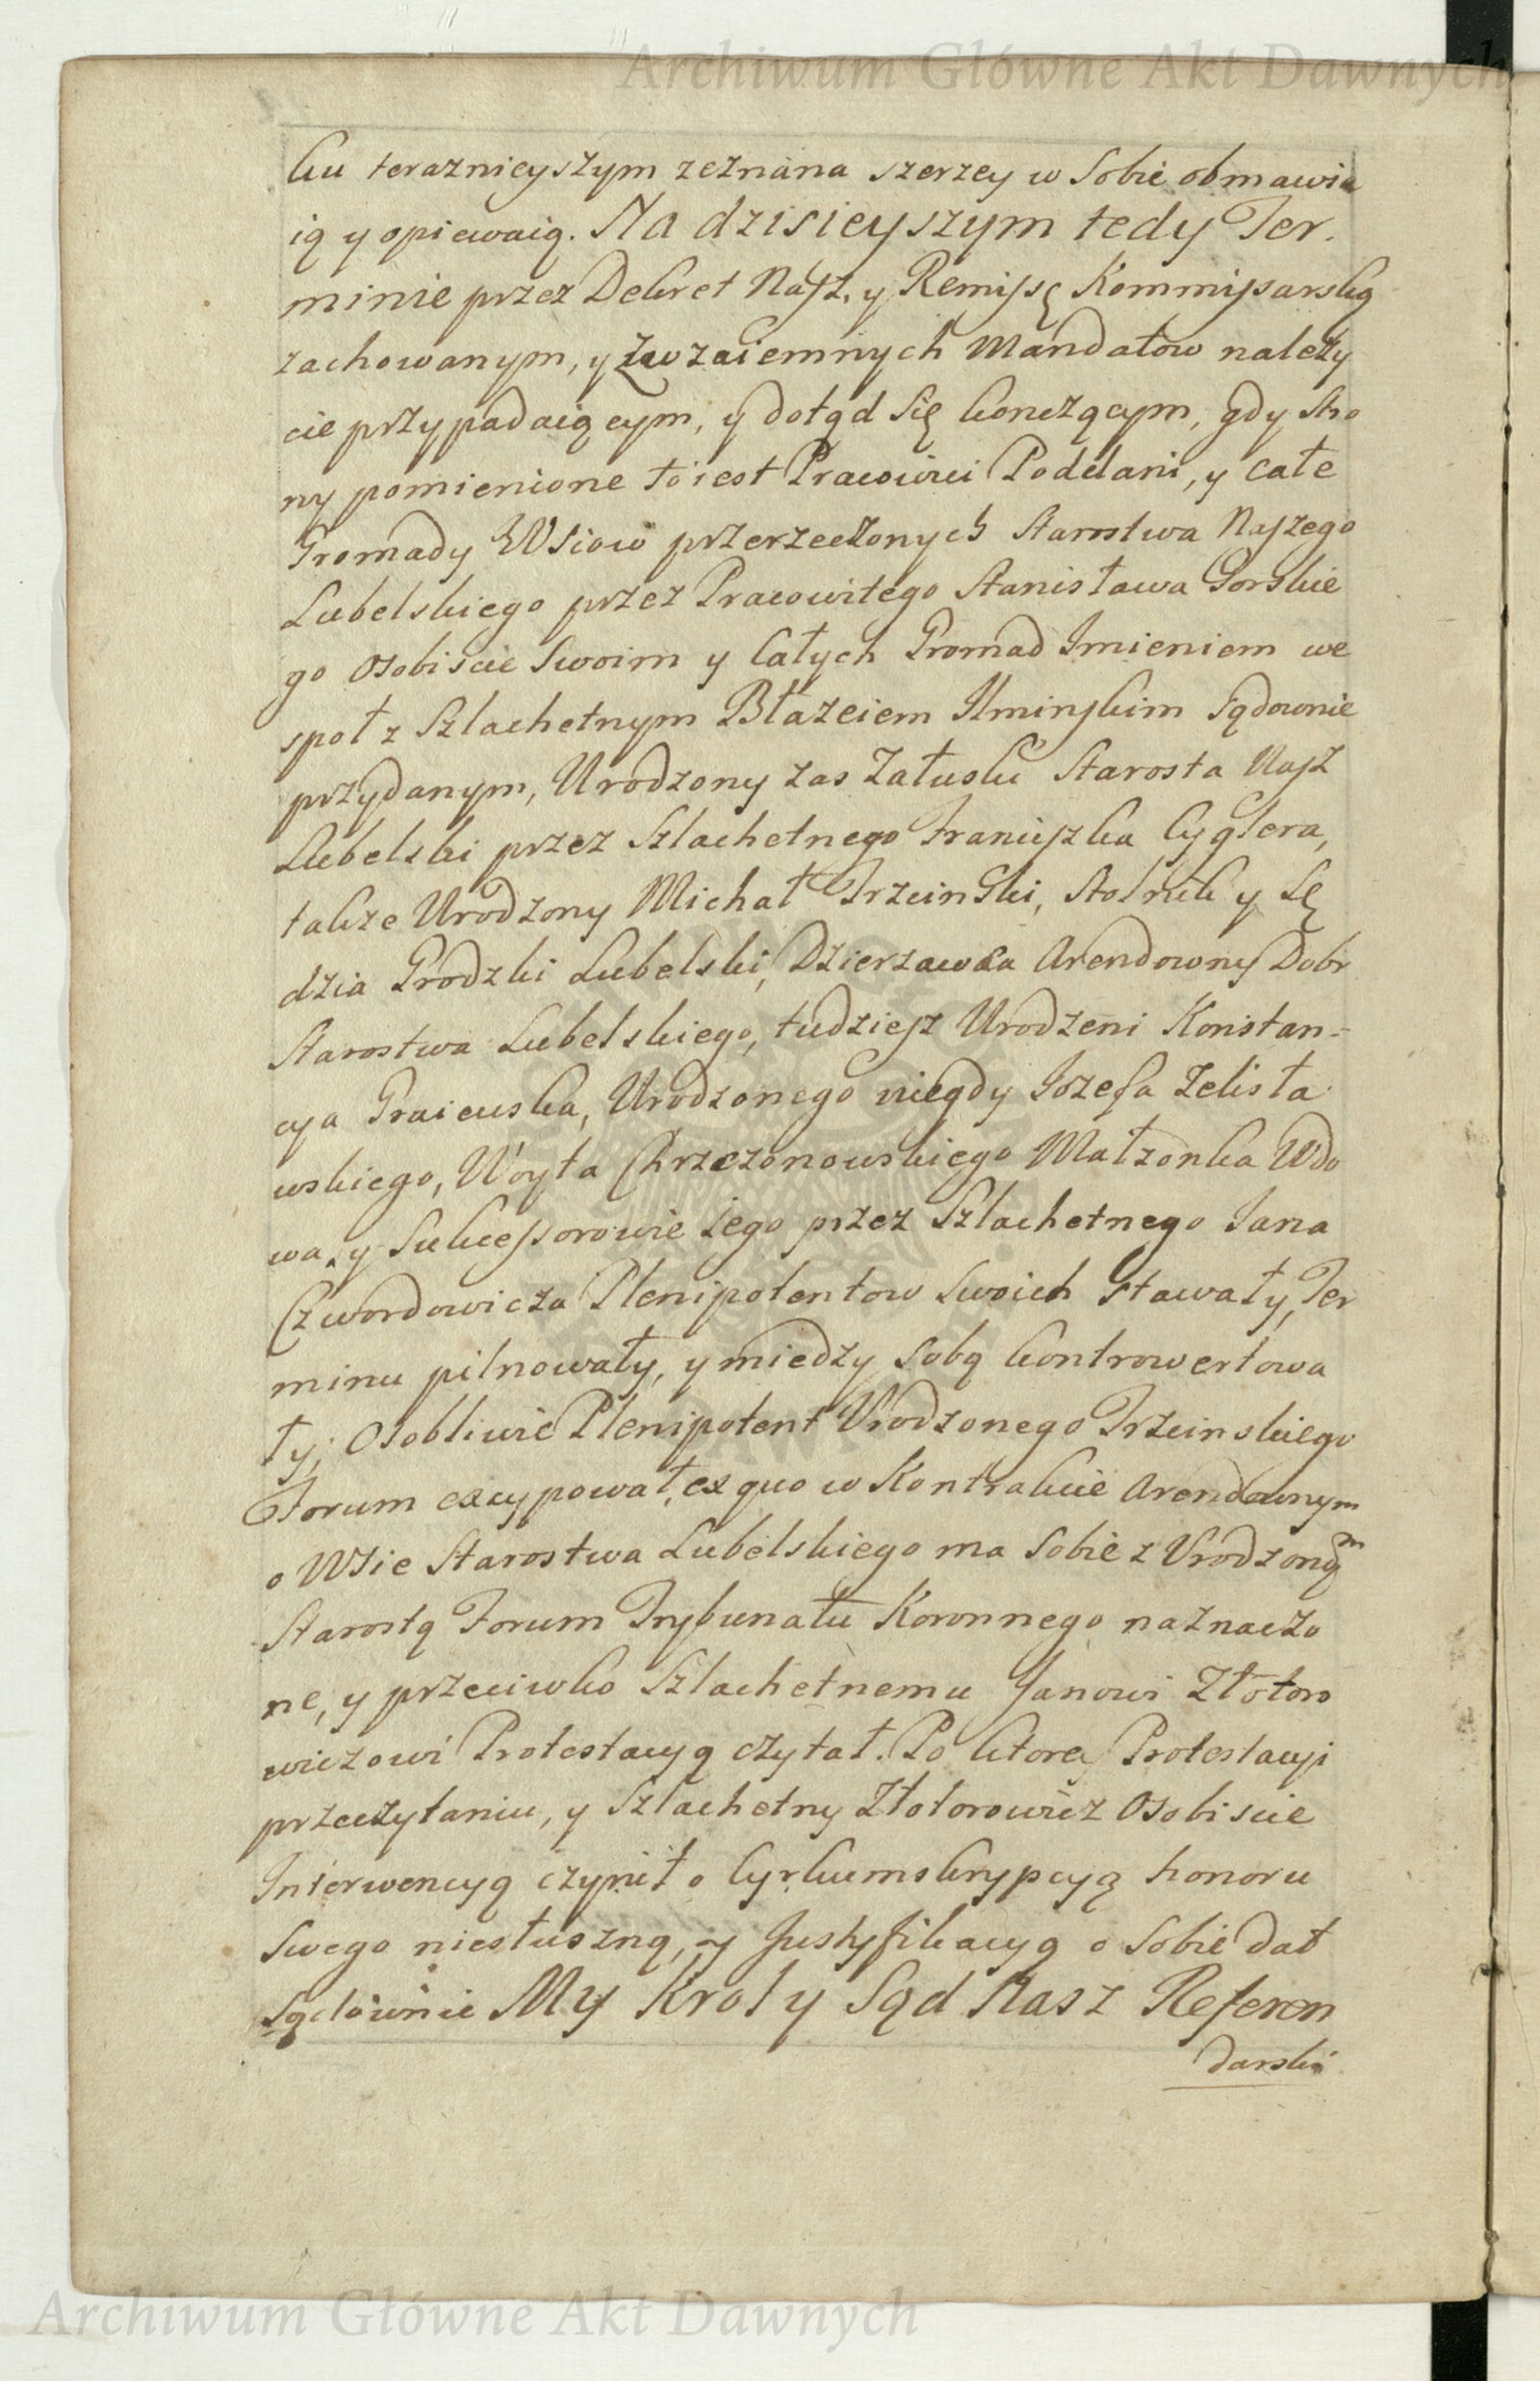 Archiwum Główne Akt Dawnych
ku teraznieyszym zeznana szerzey w Sobie obmawia
ią y opiewaią. Na dzisieyszym tedy Ter.
minie przez Dekret Nasz, y Remissę Kommissarską
zachowanym, y z wzaiemnych Mandatow należy
cie przypadaiącym, y dotąd Się konczącym, gdy Stro
ny pomienione to iest Pracowici Poddani, y całe
Gromady Wsiow przerzeczonych Starostwa Naszego
Lubelskiego przez Pracowitego Stanisława Gorskie
go osobiscie Swoim y Całych Gromad Imieniem we
społ z Szlachetnym Błazeiem Ilminskim Sądownie
przydanym, Urodzony zas Załuski Starosta Nasz
Lubelski przez Szlachetnego Franciszka Cyglera,
takze Urodzony Michał Trzcinski, Stolnik y Sę
dzia Grodzki Lubelski, Dzierzawca Arendowny Dobr
Starostwa Lubelskiego, tudziesz Urodzeni Konstan-
cya Graiewska, Urodzonego niegdy Iozefa Zelisła
wskiego, Woyta Chrzczonowskiego Małzonka Wdo
wa, y Sukcessorowie iego przez Szlachetnego Iana
Czwordowicza Plenipotentow Swoich stawały, Ter
minu pilnowały, y miedzy Sobą kontrowertowa
ły; Osobliwie Plenipotent Urodzonego Trzcinskiego
Forum excypował, ex quo w Kontrakcie Arendownym
o Wsie Starostwa Lubelskiego ma Sobie z Urodzonym
Starostą Forum Trybunału Koronnego naznaczo
ne, y przeciwko Szlachetnemu Janowi Złotoro
wiczowi Protestacyą czytał. Po ktorey Protestacyi
przeczytaniu, y Szlachetny Złotorowicz Osobiscie
Interwencyą czynił o Cyrkumskrypcyą honoru
Swego niesłuszną, y Justyfikacyą o Sobie dał
Sądownie My Krol y Sąd Nasz Referen
darski
Archiwum Główne Akt Dawnych